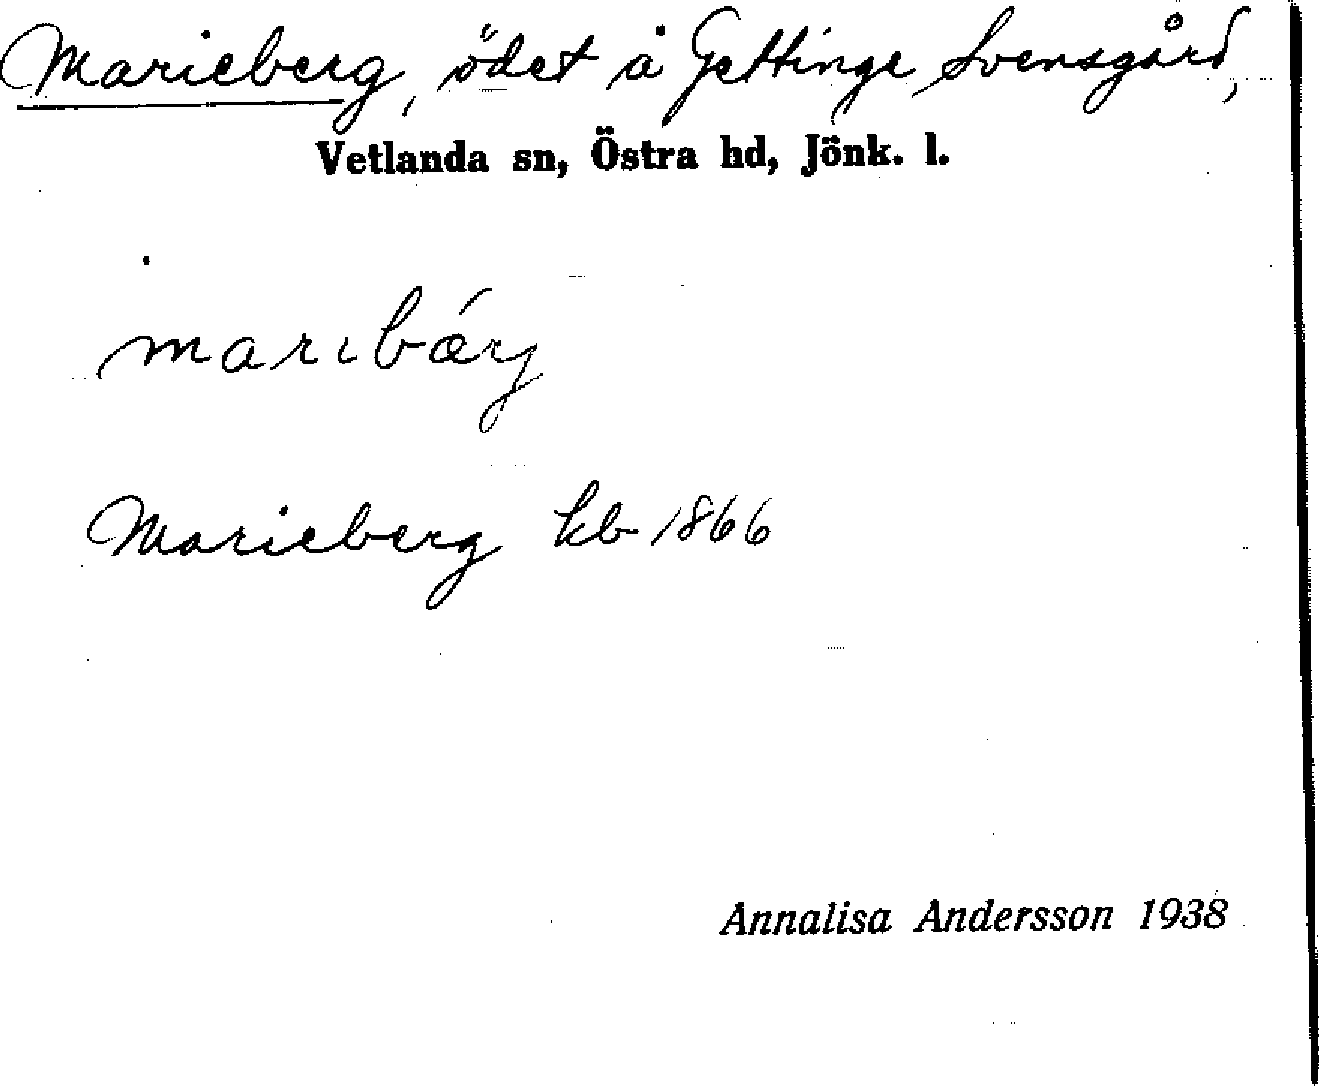 Marieberg, ödet å Gettinge Svensgård,
Vetlanda sn, Östra hd, Jönk. l.
marıbǽrj
Marieberg kb 1866
Annalisa Andersson 1938